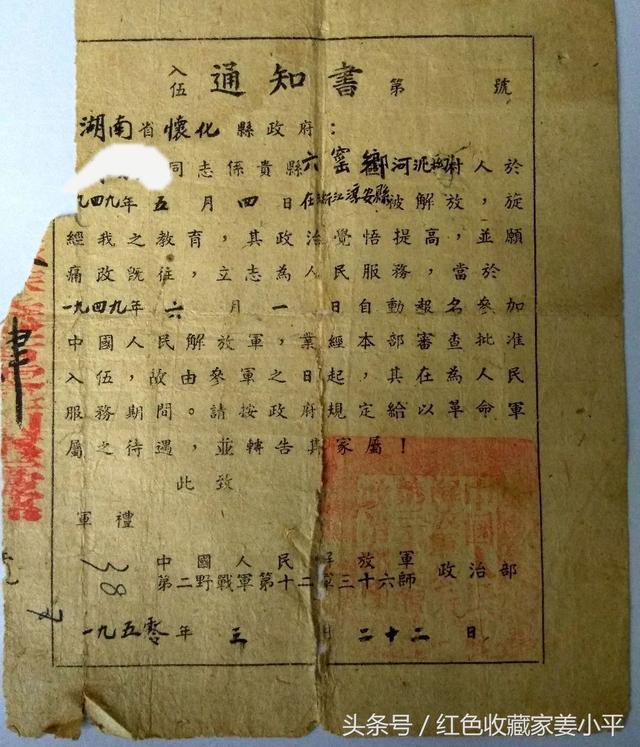 入伍通知書 第 號
湖南省懷化縣政府：
同志係貴縣六窑鄉河泥 村人於
一九四九年五月四日在浙江淳安縣被解放，旋
經我之教育，其政治覺悟提高，並願
痛改既往，立志為人民服務，當於
一九四九年六月一日自動報名參加
中國人民解放軍，業經本部審查批准
入伍，故由參軍之日起，其在為人民
服務期間。請按政府規定給以革命軍
屬之待遇，並轉告其家屬！
此致
軍禮
中國人民解放軍
第二野戰軍第十二軍三十六師 政治部
一九五零年三月二十二日
38
7
头条号／红色收藏家姜小平